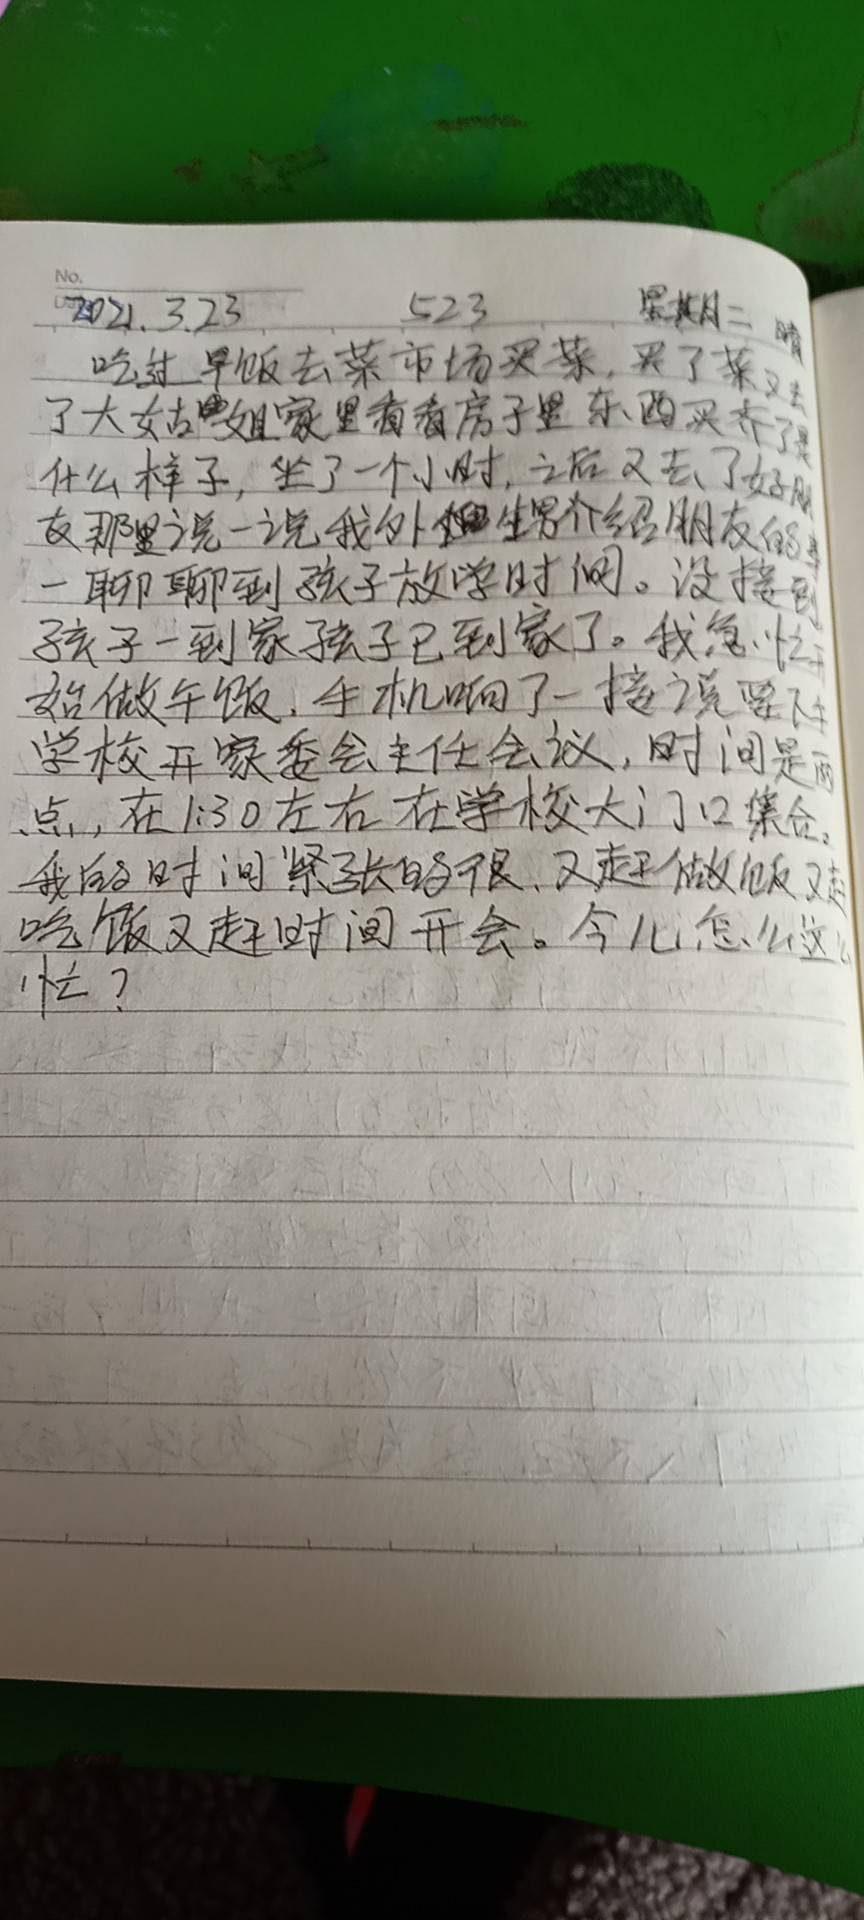 No.
2021.3.23 523 星期二 晴
吃过早饭去菜市场买菜，买了菜又去
了大姑姐家里看看房子里东西买齐了是
什么样子，坐了一个小时，之后又去了好朋
友那里说一说我外生男介绍朋友的事
一聊聊到孩子放学时间。没接到
孩子一到家孩子已到家了。我急忙开
始做午饭，手机响了一接说要下午
学校开家委会主任会议，时间是两
点，在1:30左右在学校大门口集合。
我的时间紧张的很，又赶做饭又赶
吃饭又赶时间开会。今儿怎么这么
忙？